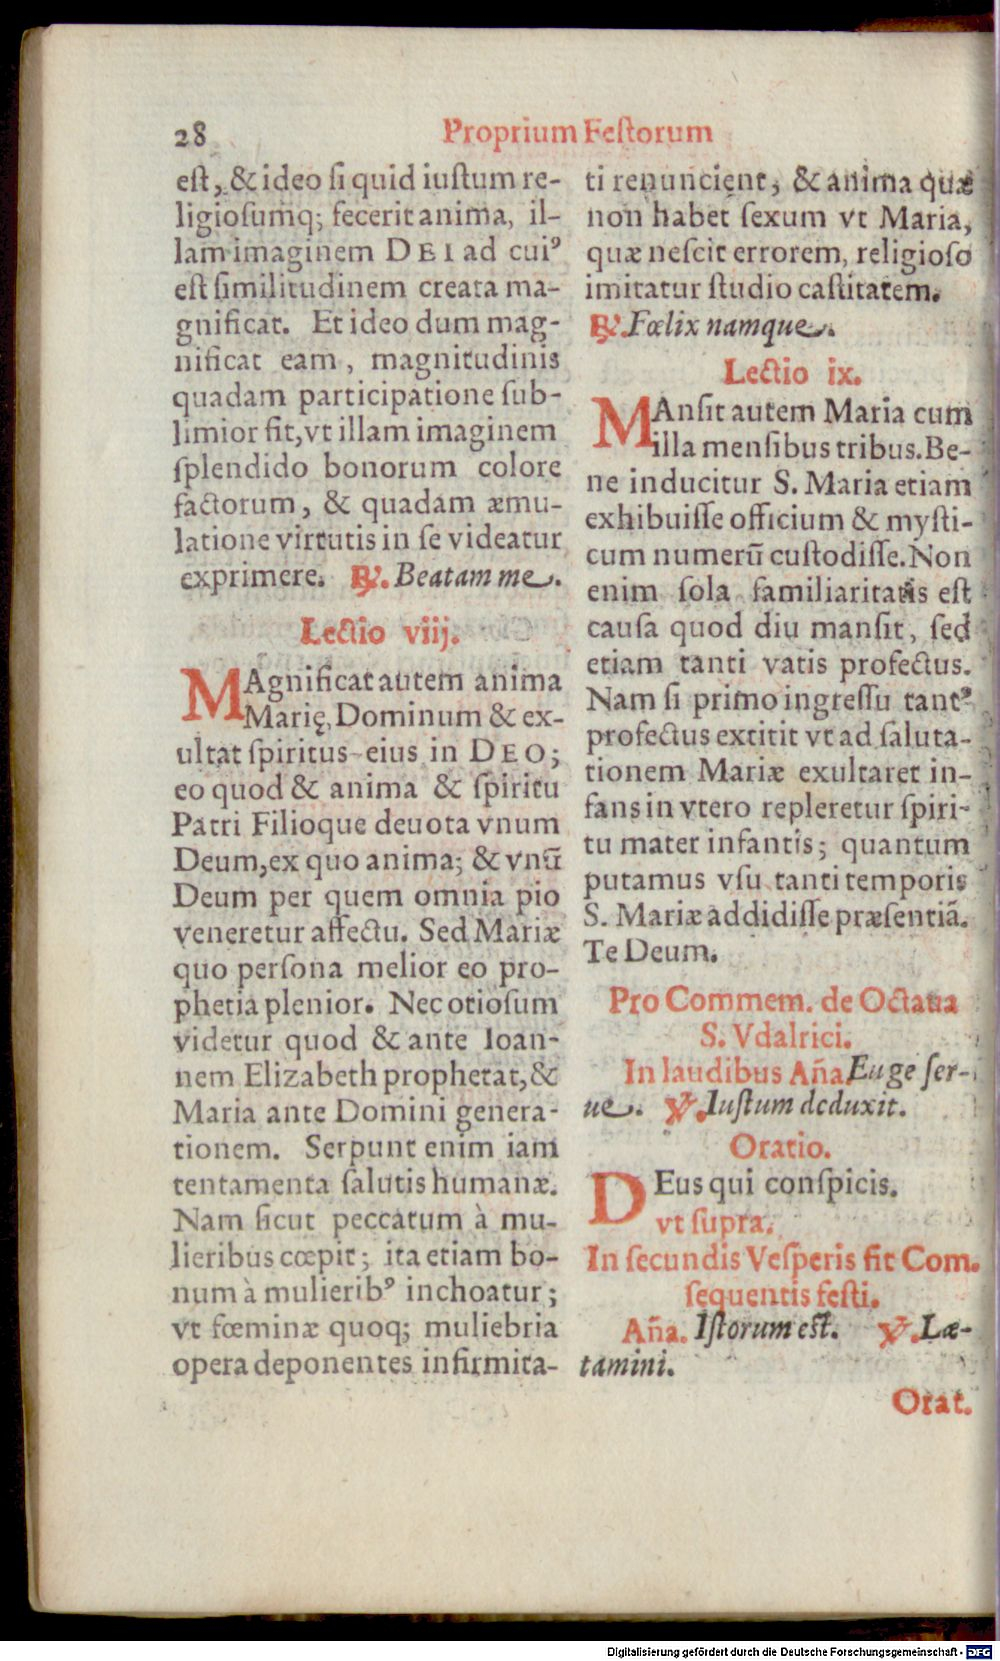 28
Proprium Festorum
est, & ideo si quid iustum re-
ligiosumq; fecerit anima, il-
lam imaginem DEI ad cuiꝰ
est similitudinem creata ma-
gnificat. Et ideo dum mag-
nificat eam, magnitudinis
quadam participatione sub-
limior fit, vt illam imaginem
splendido bonorum colore
factorum, & quadam æmu-
latione virtutis in se videatur
exprimere. ℟. Beatam me.
Lectio viij.
MAgnificat autem anima
Marię, Dominum & ex-
ultat spiritus eius in DEO;
eo quod & anima & spiritu
Patri Filioque deuota vnum
Deum, ex quo anima; & vnũ
Deum per quem omnia pio
veneretur affectu. Sed Mariæ
quo persona melior eo pro-
phetia plenior. Nec otiosum
videtur quod & ante Ioan-
nem Elizabeth prophetat, &
Maria ante Domini genera-
tionem. Serpunt enim iam
tentamenta salutis humanæ.
Nam sicut peccatum à mu-
lieribus cœpit; ita etiam bo-
num à mulieribꝰ inchoatur;
vt fœminæ quoq; muliebria
opera deponentes infirmita-
ti renuncient, & anima quæ
non habet sexum vt Maria,
quæ nescit errorem, religioso
imitatur studio castitatem.
℟. Fœlix namque.
Lectio ix.
MAnsit autem Maria cum
illa mensibus tribus. Be-
ne inducitur S. Maria etiam
exhibuisse officium & mysti-
cum numerũ custodisse. Non
enim sola familiaritatis est
causa quod diu mansit, sed
etiam tanti vatis profectus.
Nam si primo ingressu tantꝰ
profectus extitit vt ad saluta-
tionem Mariæ exultaret in-
fans in vtero repleretur spiri-
tu mater infantis; quantum
putamus vsu tanti temporis
S. Mariæ addidisse præsentiã.
Te Deum.
Pro Commem. de Octaua
S. Vdalrici.
In laudibus Aña. Euge ser-
ue. ℣. Iustum deduxit.
Oratio.
DEus qui conspicis.
vt supra.
In secundis Vesperis fit Com.
sequentis festi.
Aña. Istorum est. ℣. Læ-
tamini.
Orat.
Digitalisierung gefördert durch die Deutsche Forschungsgemeinschaft - DFG